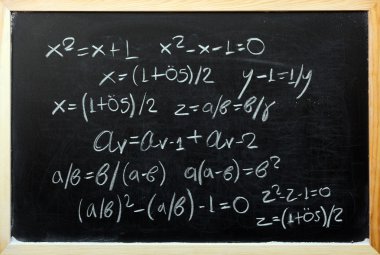 x²=x+1 x²-x-1=0
x=(1+ö5)/2 y-1=1/y
x=(1+ö5)/2 z=a/b=b/r
av=av-1+av-2
a/b=b/(a-b) a(a-b)=b²
(a/b)²-(a/b)-1=0 z²-z-1=0
z=(1+ö5)/2